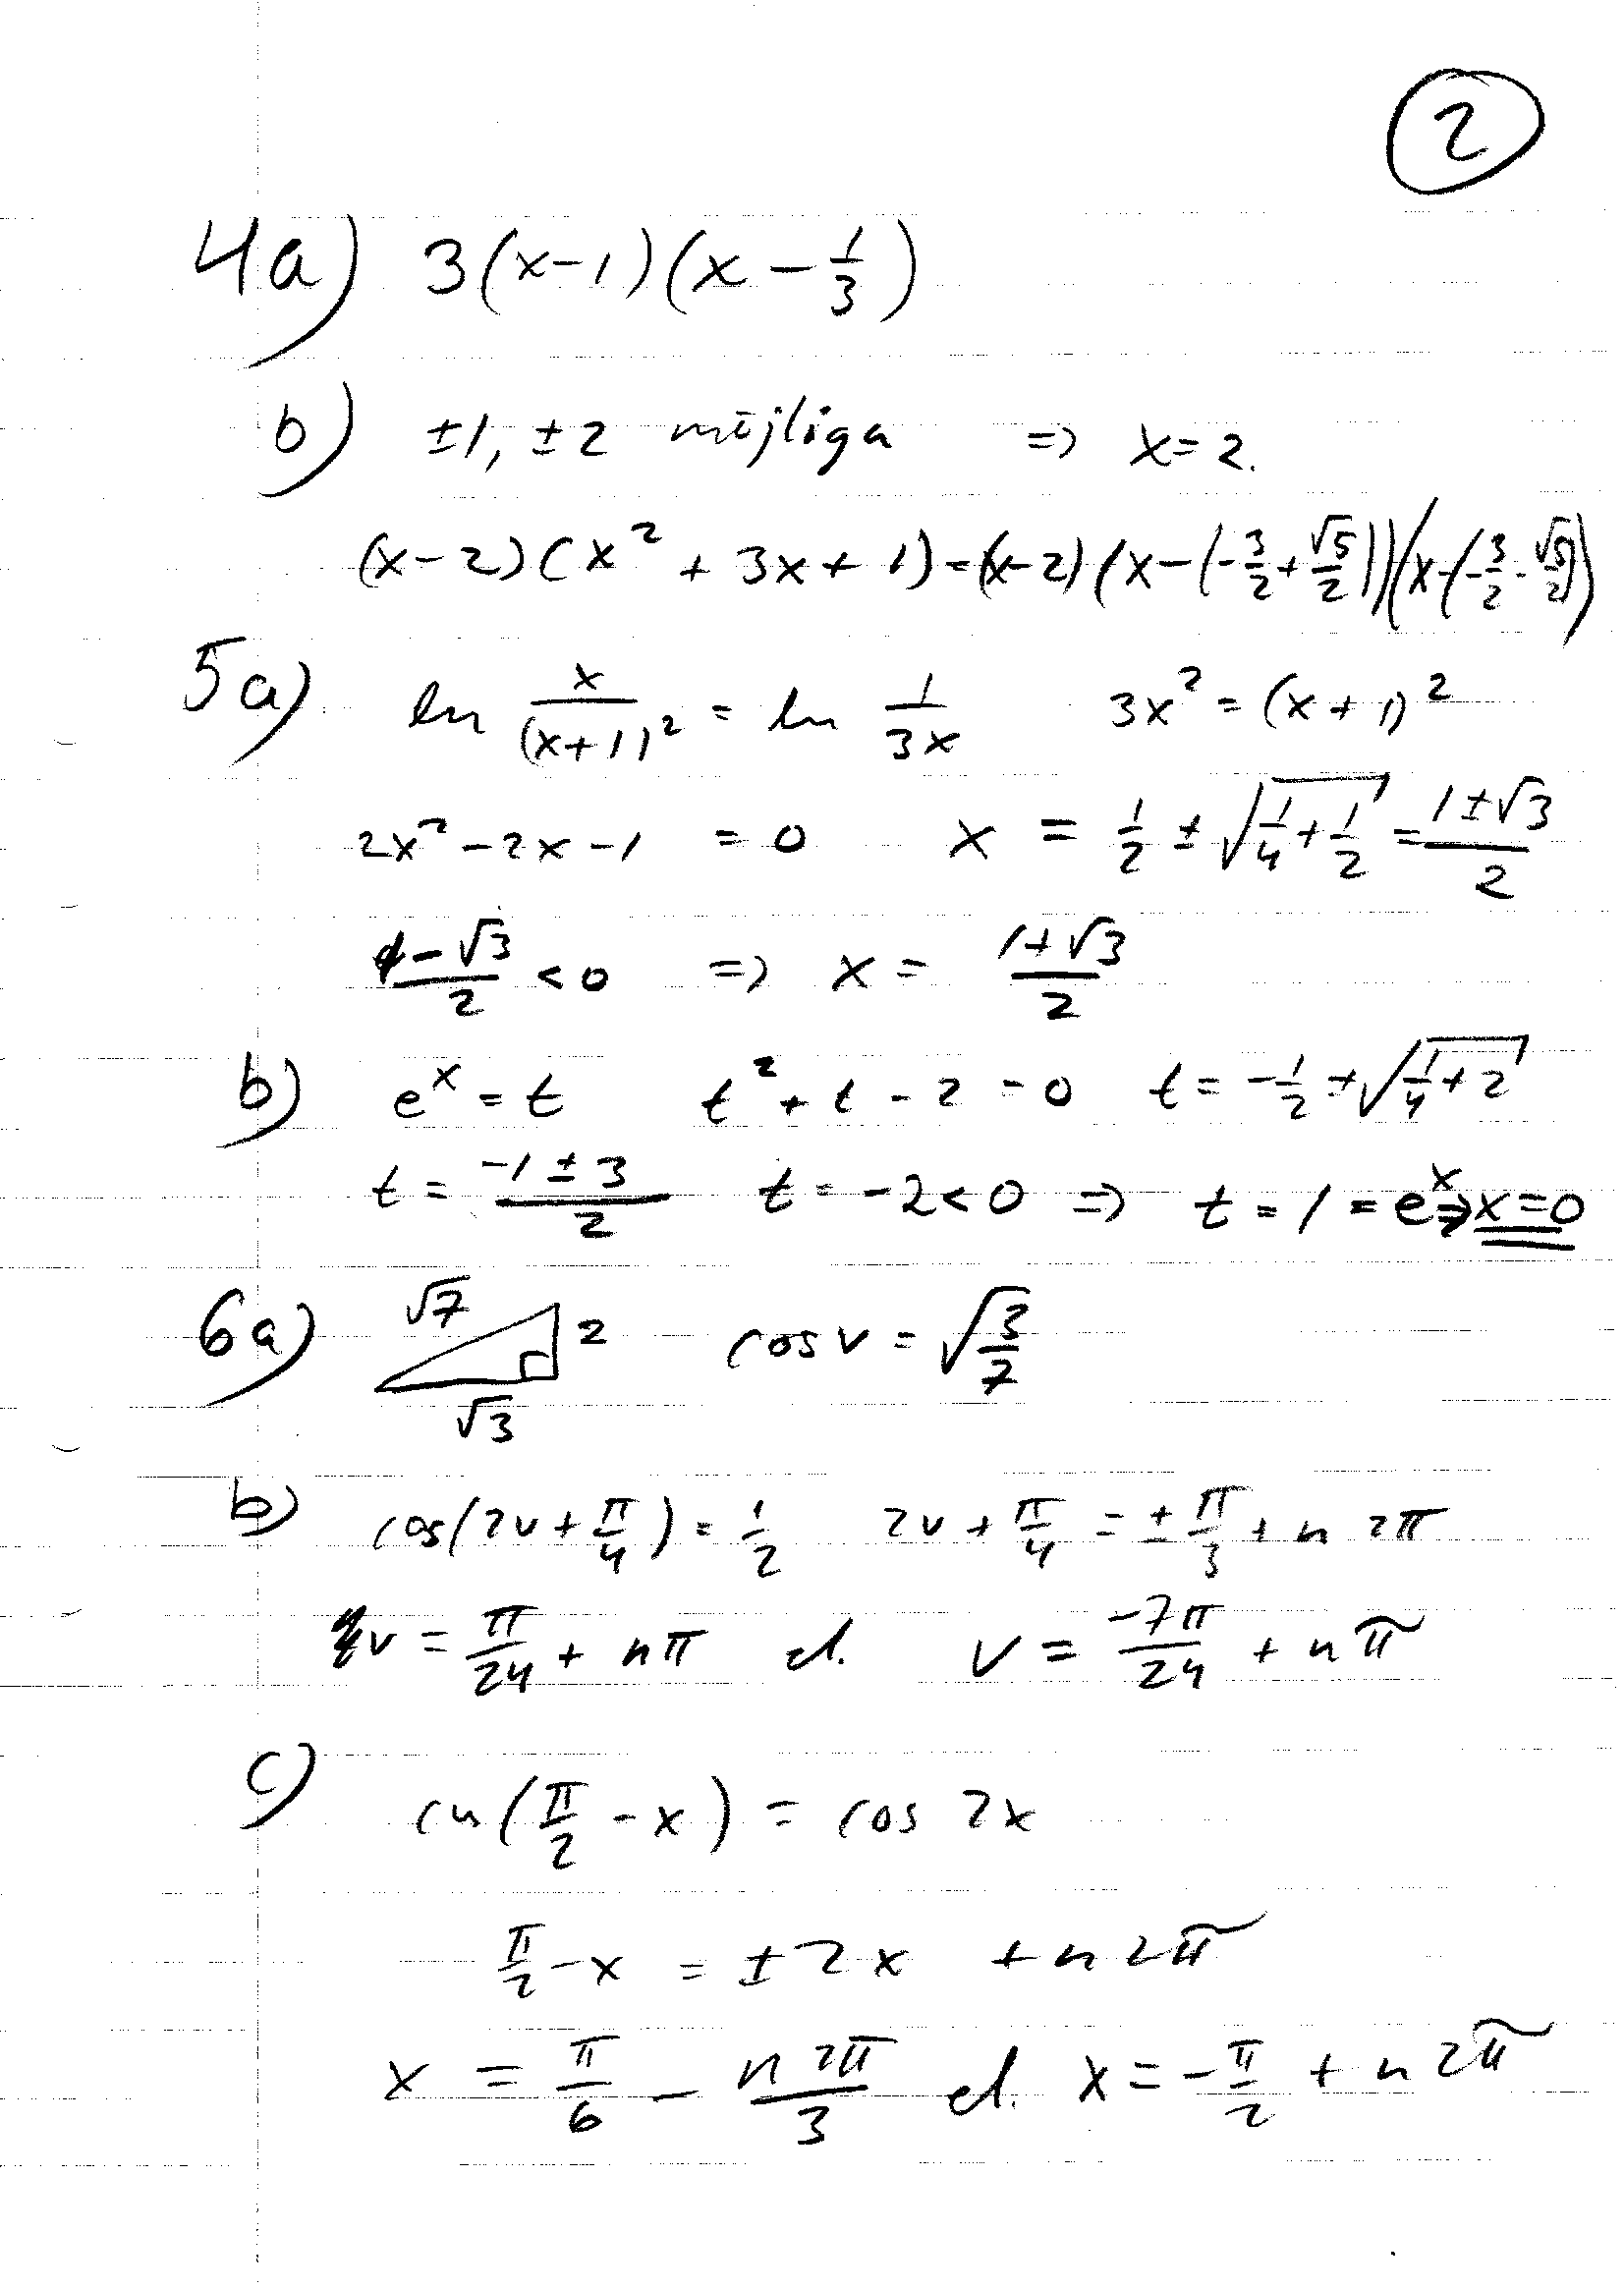 2
4a) 3(x-1)(x - 1/3)
b) ±1, ±2 möjliga => x=2.
(x-2)(x² + 3x + 1) = (x-2)(x-(-3/2 + √5/2))(x-(-3/2 - √5/2))
5a) ln x/(x+1)² = ln 1/3x 3x² = (x+1)²
2x² - 2x - 1 = 0 x = 1/2 ± √(1/4 + 1/2) = (1±√3)/2
(1-√3)/2 < 0 => x = (1+√3)/2
b) eˣ = t t² + t - 2 = 0 t = -1/2 ± √(1/4 + 2)
t = (-1 ± 3)/2 t = -2 < 0 => t = 1 = eˣ => x = 0
6a) √7 2 √3 cos v = √(3/7)
b) cos(2v + π/4) = 1/2 2v + π/4 = ± π/3 + n 2π
v = π/24 + nπ el. v = -7π/24 + nπ
c) cos(π/2 - x) = cos 2x
π/2 - x = ± 2x + n 2π
x = π/6 - n 2π/3 el. x = -π/2 + n 2π